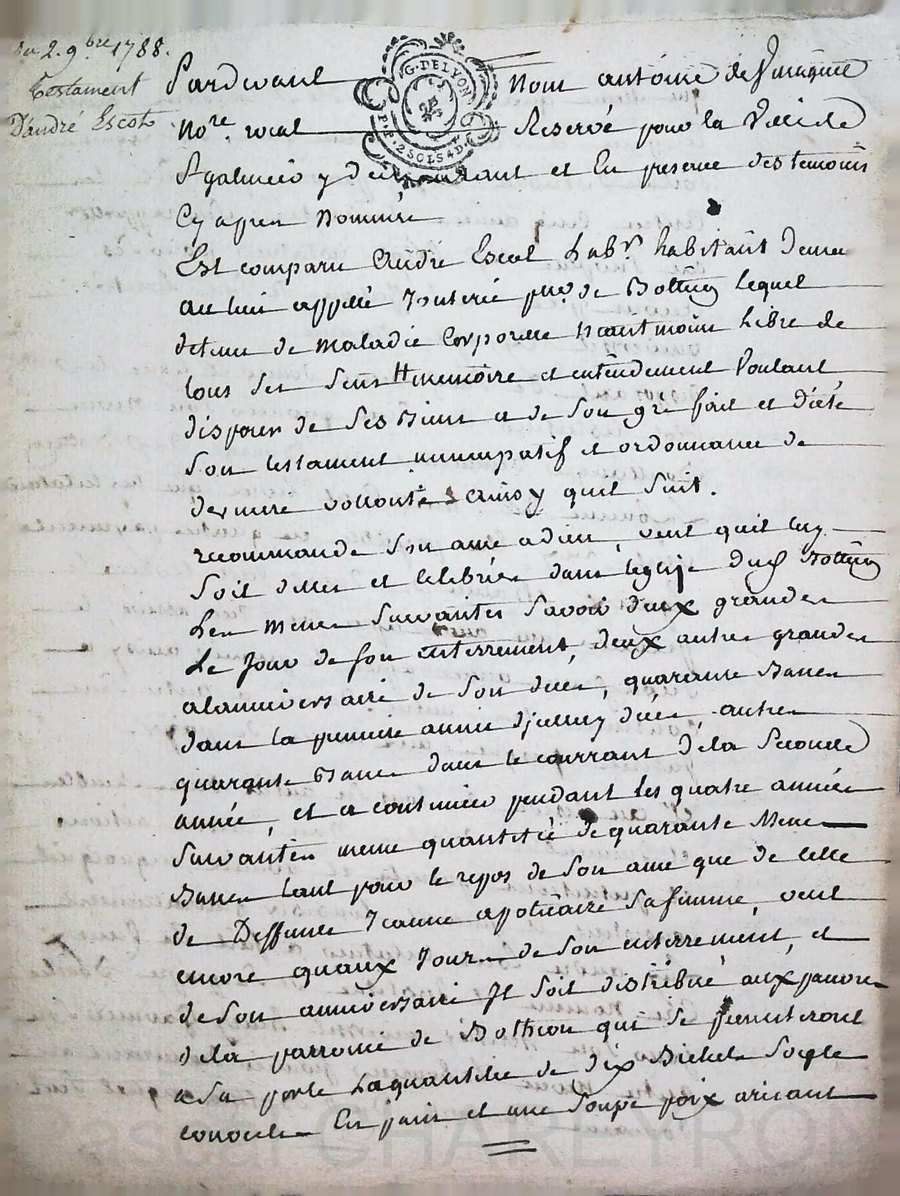 Du 2. 9bre 1788.
Testament
D'andré Escot
G. DE LYON
P.P. 2 SOLS 4 D.
Pardevant Nous antoine de
Nore. royal Reservé pour la Ville de
Sgalmier y demeurant et En presence des temoins
Cy apres Nommés
Est comparu André Escot Labr. habitant
au lieu appellé psse. de Botheon lequel
detenu de maladie Corporelle Neantmoins Libre de
tous ses sens memoire et entendement Voulant
disposer de ses Biens a de son gré fait et dicté
son testament nuncupatif et ordonnance de
derniere vollonté ainsy quil suit.
recommande son ame a dieu, veut quil luy
soit dittes et celebrées dans leglise dud Botheon
Les messes suivantes savoir deux grandes
Le Jour de son enterrement, deux autres grandes
alanniversaire de son deces, quarante Basses
dans la premiere année deces, autres
quarante Basses dans le courrant dela seconde
année, et a continuer pendant les quatre années
suivantes meme quantitée de quarante Messes
Basses tant pour le repos de son ame que de celle
de Deffunte Jeanne apoticaire sa femme, veut
encore quaux Jours de son enterrement, et
de son anniversaire Il soit distribué aux pauvres
dela parroisse de Botheon qui se presenteront
a sa porte Laquantitée de dix Bichets soigle
convertis En pain et une soupe poix
Pascal CHAREYRON